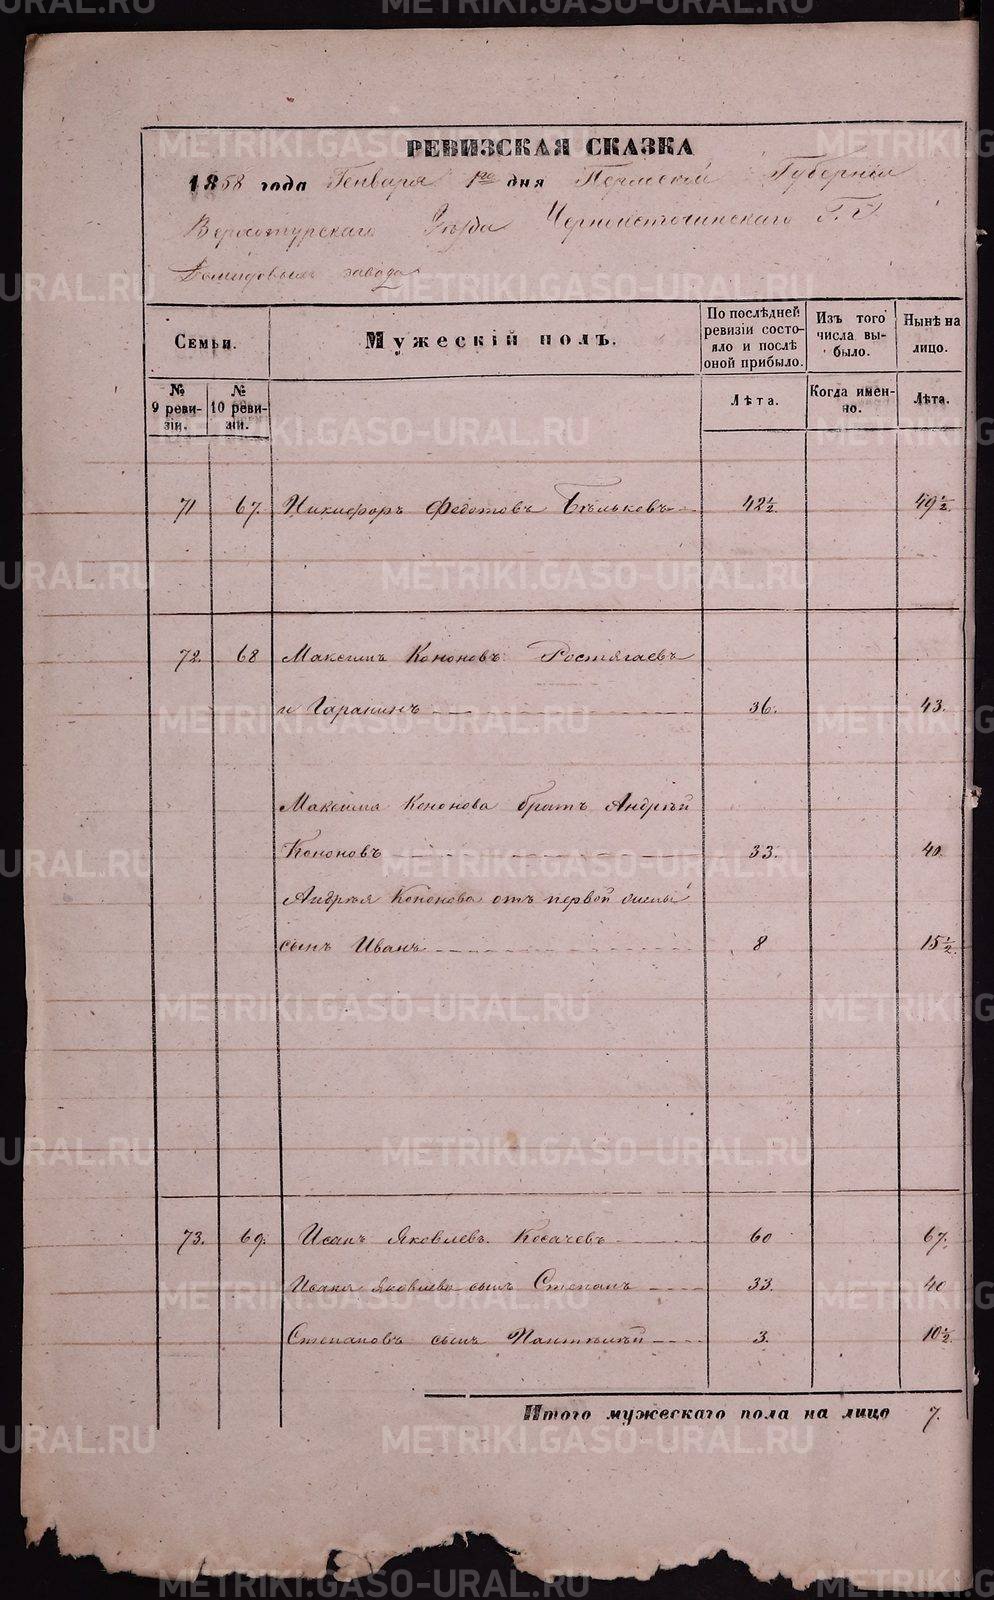 РЕВИЗСКАЯ СКАЗКА
1858 года Генваря 1го дня Пермской Губернии
Верхотурскаго Уезда Черноисточинскаго Г.Г.
Демидовыхъ завода
Семьи.
Мужескій полъ.
По послѣдней ревизіи состояло и послѣ оной прибыло.
Изъ того числа выбыло.
Нынѣ на лицо.
№ 9 ревизіи.
№ 10 ревизіи.
Лѣта.
Когда именно.
Лѣта.
71 67. Никифоръ Федотовъ Бѣльковъ 42½ 49½
72. 68 Максимъ Кононовъ Ростягаевъ
и Гаранинъ 36. 43.
Максима Кононова братъ Андрѣй
Кононовъ 33. 40.
Андрѣя Кононова отъ первой жены
сынъ Иванъ 8 15½
73. 69. Исакъ Яковлевъ Косачевъ 60 67.
Исака Яковлева сынъ Степанъ 33. 40
Степановъ сынъ Пантелѣй 3. 10½
Итого мужескаго пола на лицо 7.
METRIKI.GASO-URAL.RU